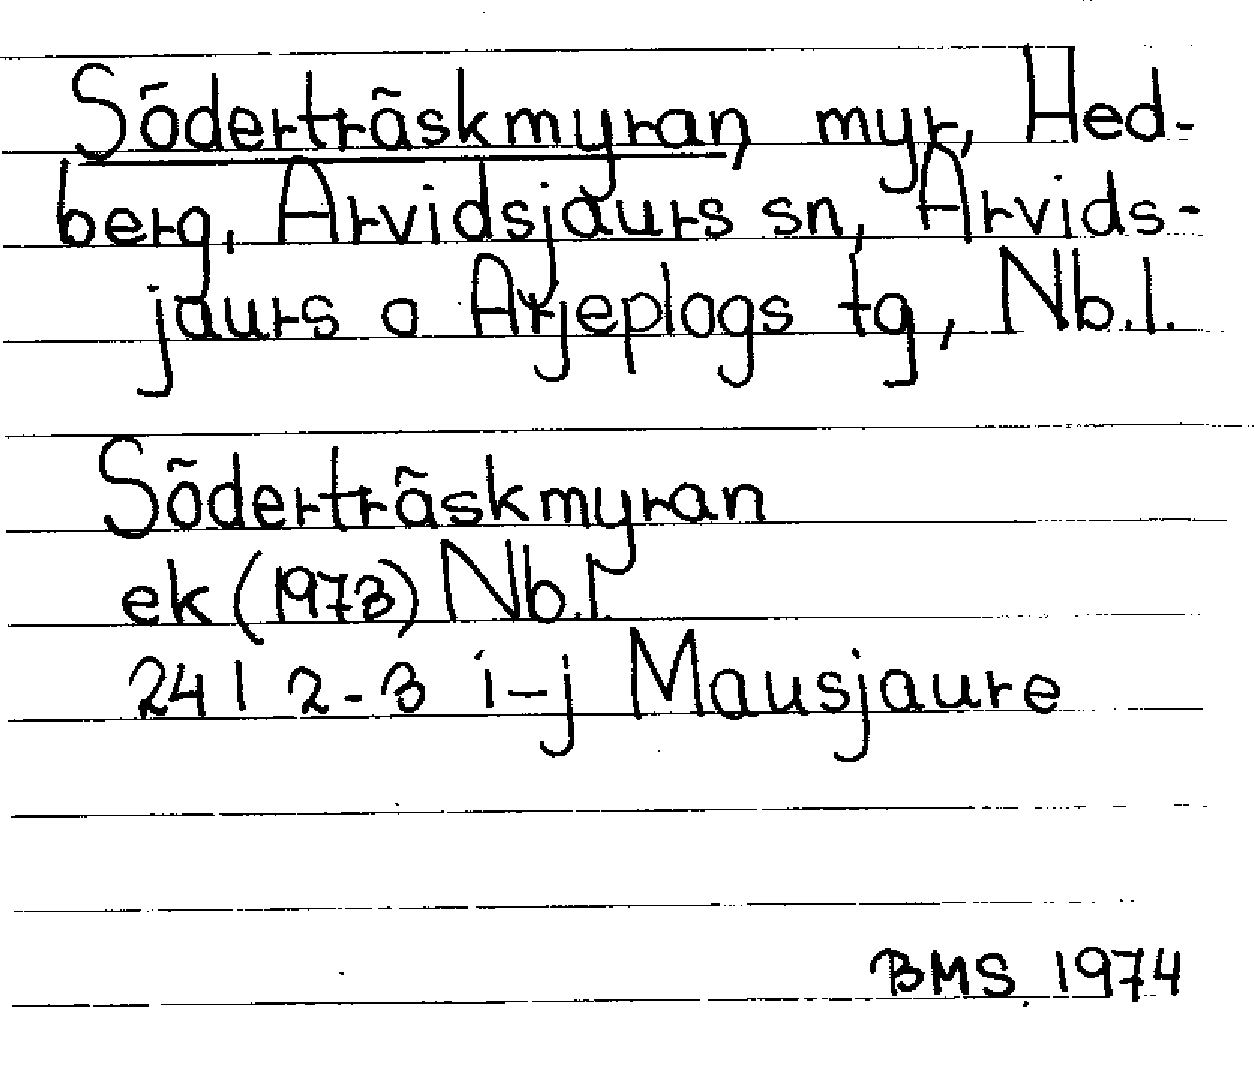 Söderträskmyran, myr, Hed-
berg, Arvidsjaurs sn, Arvids-
jaurs o Arjeplogs tg, Nb.l.
Söderträskmyran
ek (1973) Nb.l.
24 I 2-3 i-j Mausjaure
BMS. 1974